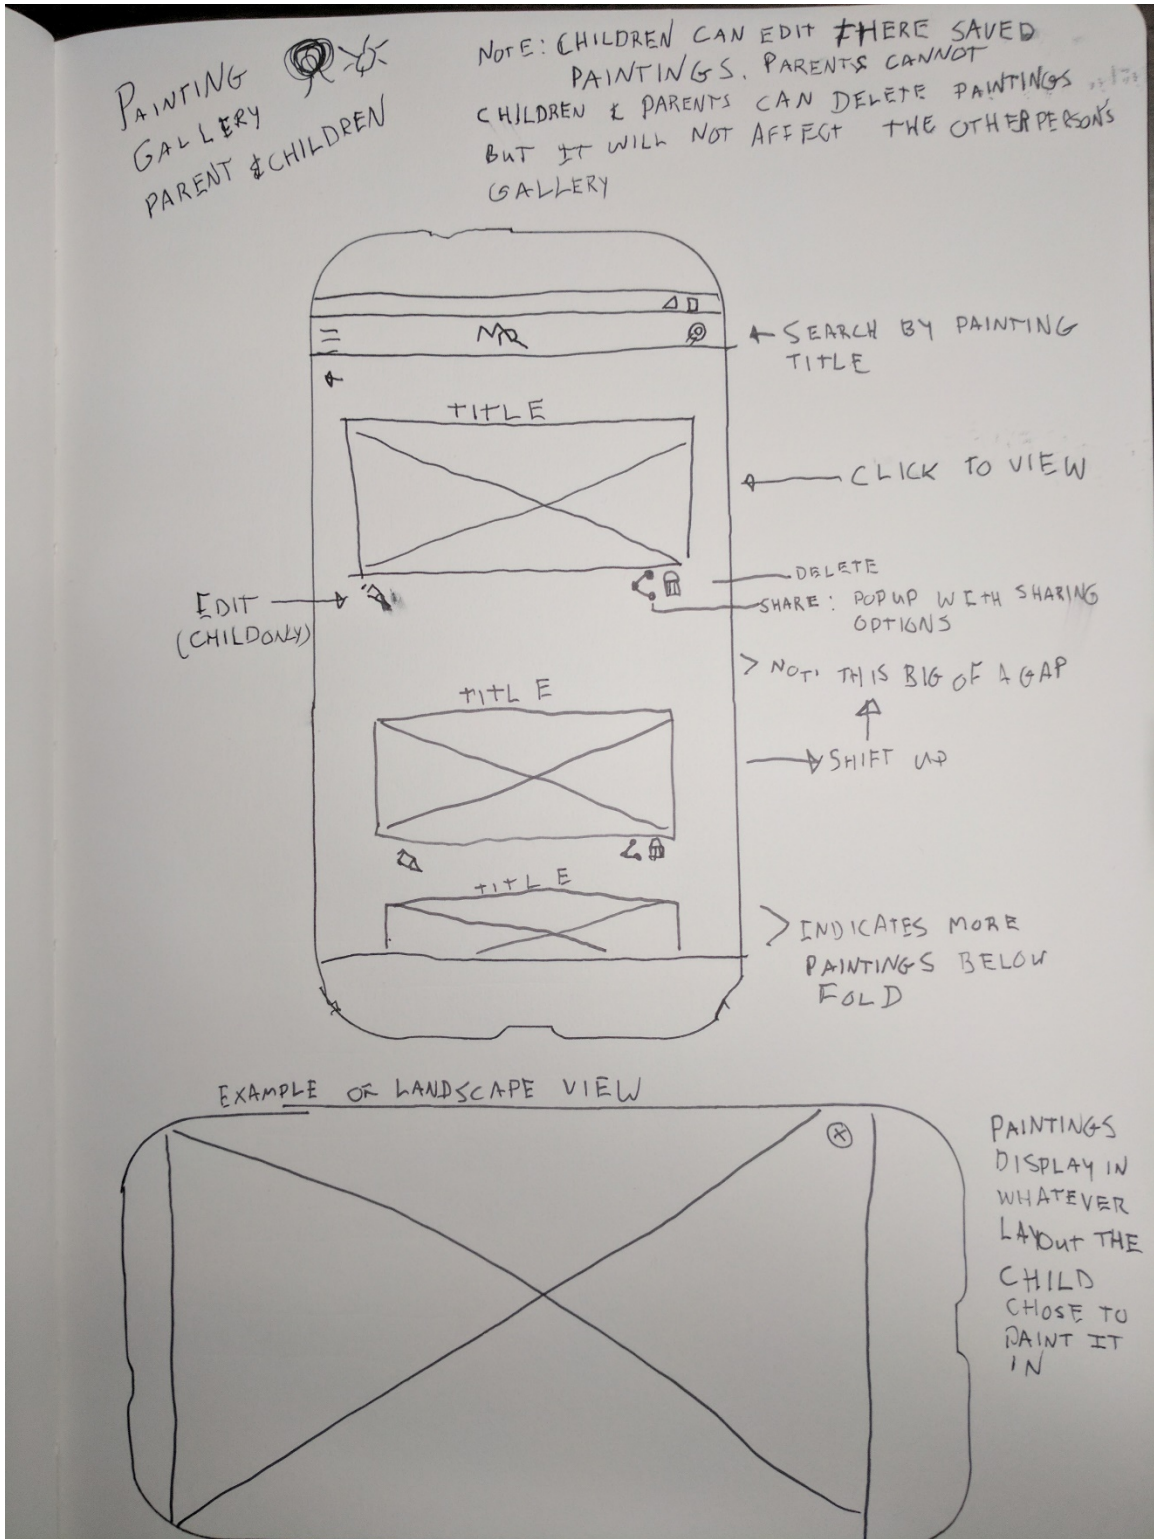 PAINTING
GALLERY
PARENT & CHILDREN
NOTE: CHILDREN CAN EDIT THERE SAVED
PAINTINGS. PARENTS CANNOT
CHILDREN & PARENTS CAN DELETE PAINTINGS
BUT IT WILL NOT AFFECT THE OTHER PERSON'S
GALLERY
SEARCH BY PAINTING
TITLE
TITLE
CLICK TO VIEW
DELETE
SHARE: POPUP WITH SHARING
OPTIONS
EDIT
(CHILD ONLY)
NOT THIS BIG OF A GAP
TITLE
SHIFT UP
TITLE
INDICATES MORE
PAINTINGS BELOW
FOLD
EXAMPLE OF LANDSCAPE VIEW
PAINTINGS
DISPLAY IN
WHATEVER
LAYOUT THE
CHILD
CHOSE TO
PAINT IT
IN